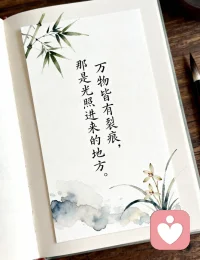 万物皆有裂痕，
那是光照进来的地方。